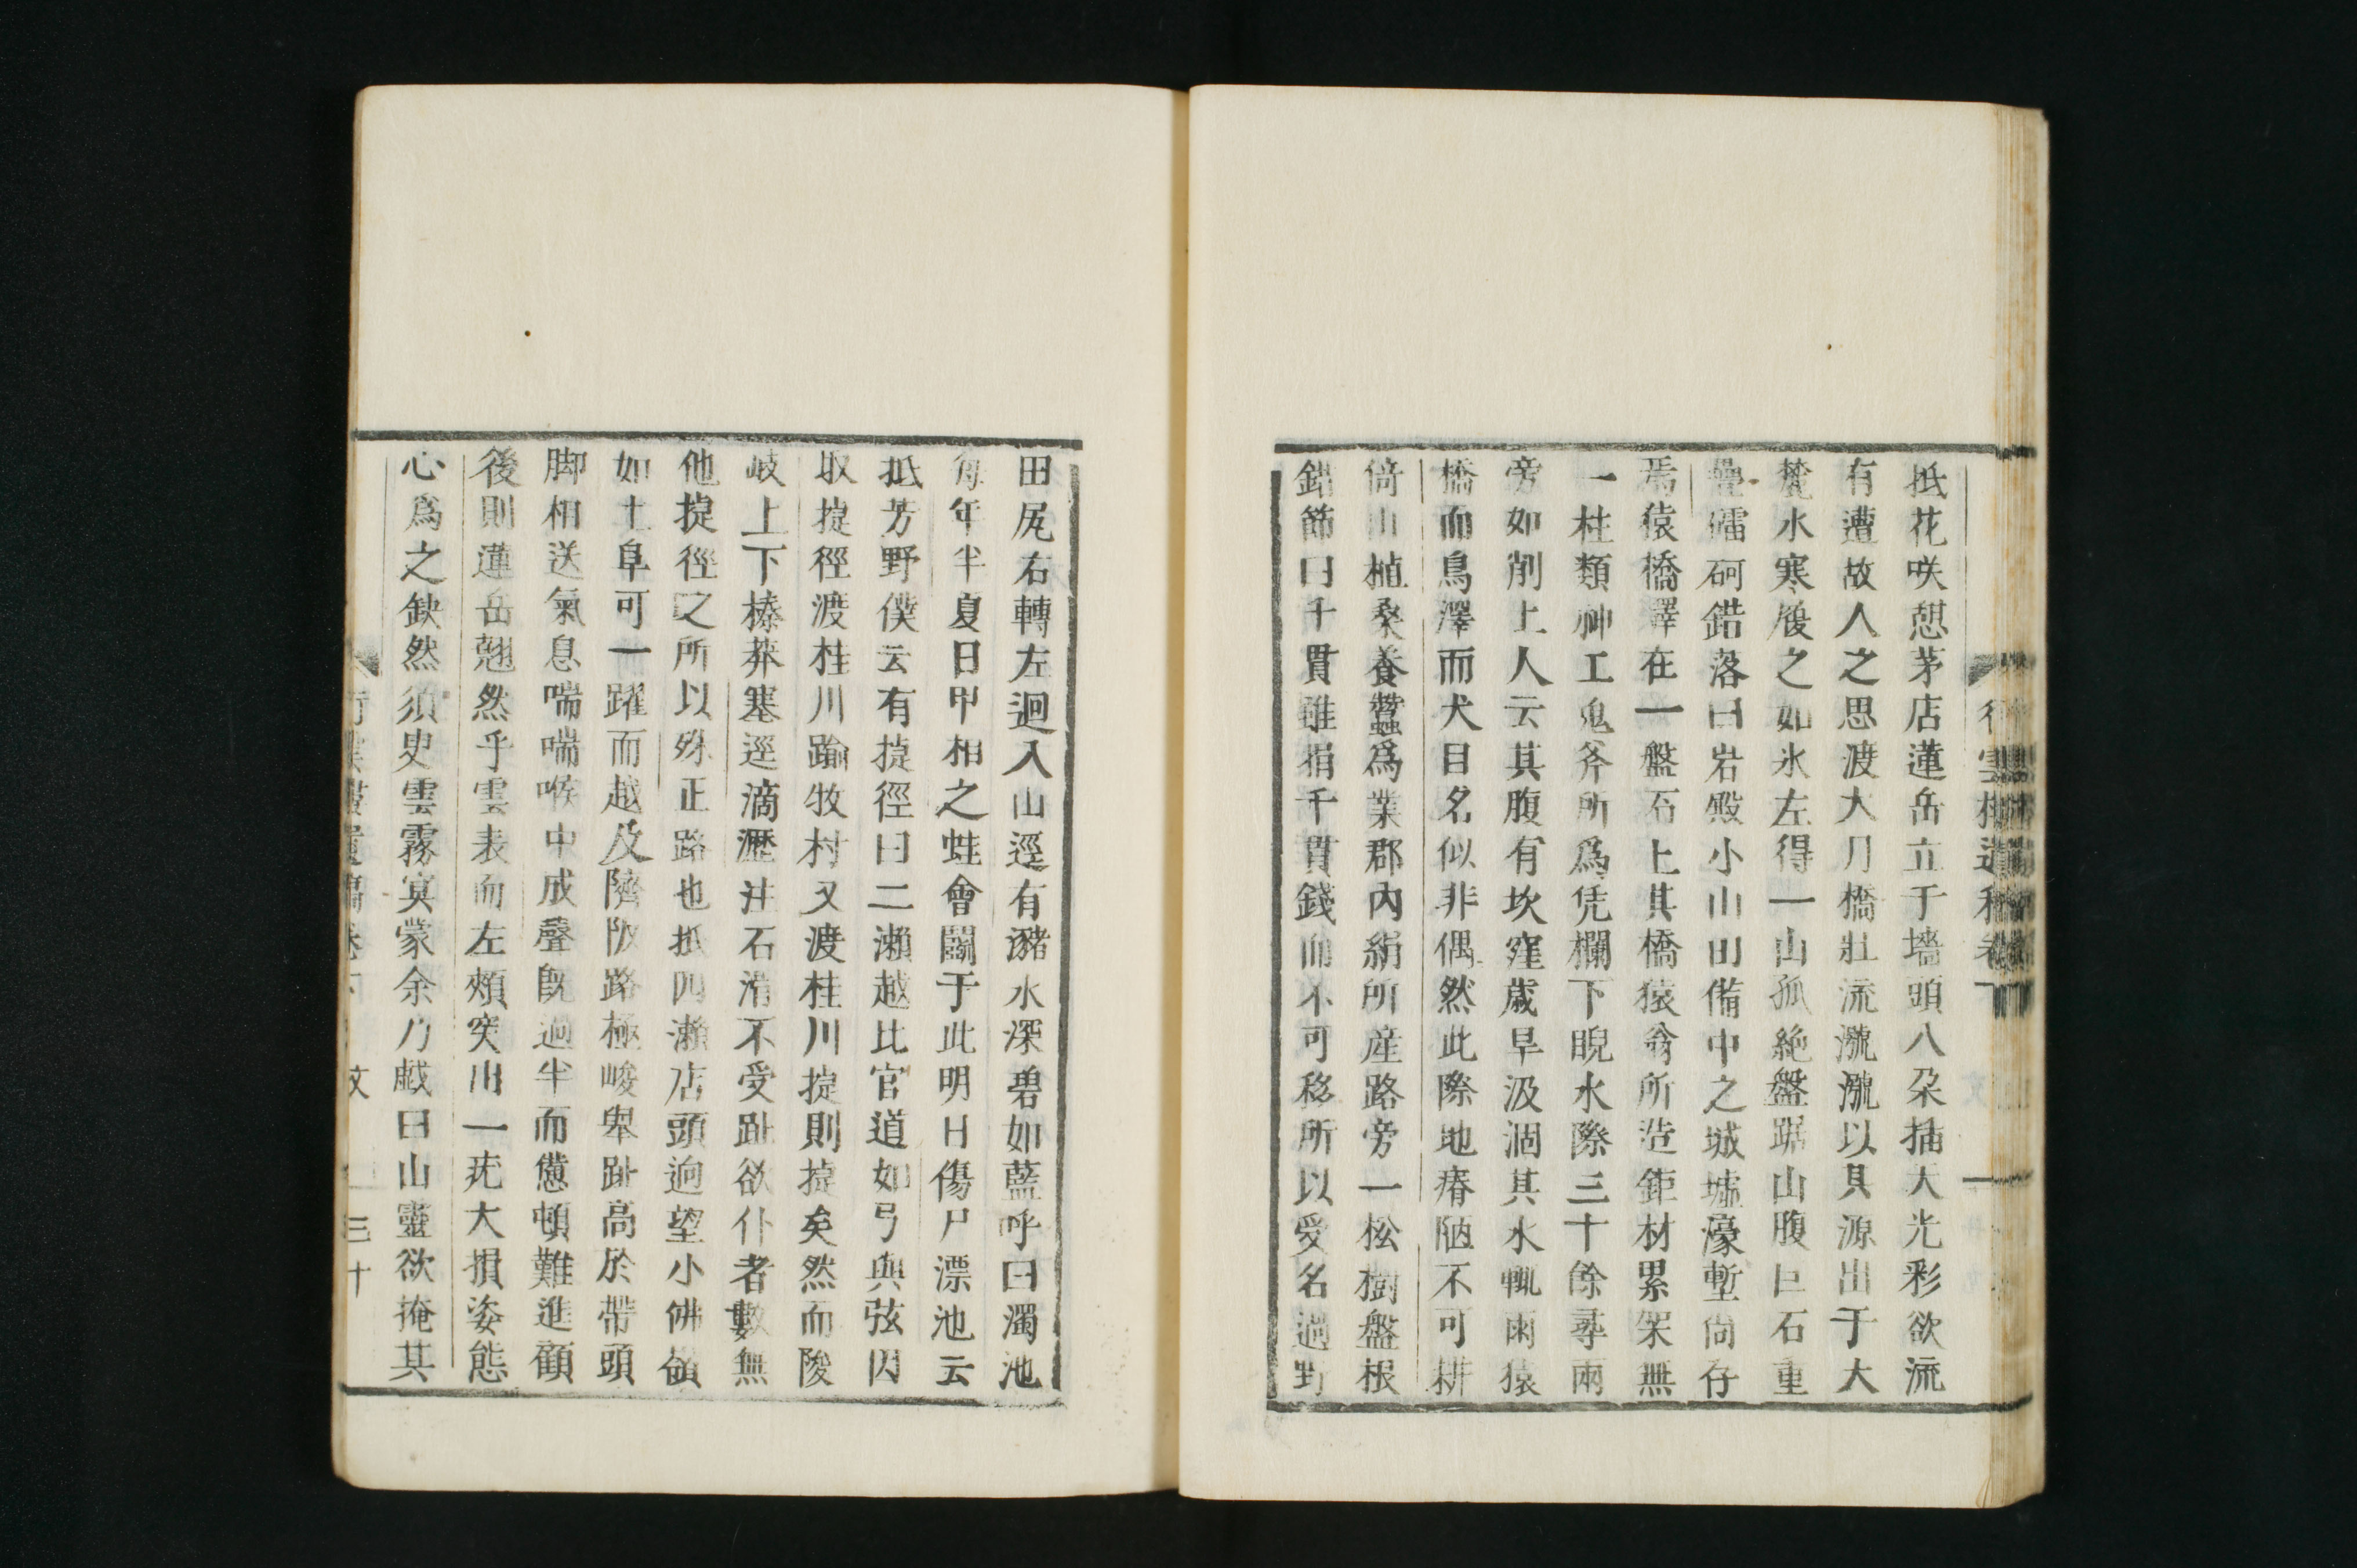 抵花咲憩茅店蓮岳立于墻頭八朶插天光彩欲流
有遭故人之思渡大月橋壯流瀧瀧以具源出于大
麓水寒履之如氷左得一山孤絶盤踞山腹巨石重
疊礌砢錯落曰岩殿小山田備中之城墟濠塹尙存
焉猿橋驛在一盤石上其橋猿翁所造鉅材累架無
一柱類神工鬼斧所爲凭欄下睨水際三十餘尋兩
旁如削土人云其腹有坎窪歲旱汲涸其水輒雨猿
橋而鳥澤而犬目名似非偶然此際地瘠陋不可耕
倚山植桑養蠶爲業郡內絹所産路旁一松樹盤根
錯節曰千貫雖捐千貫錢而不可移所以受名過野
田尻右轉左迴入山逕有瀦水深碧如藍呼曰濁池
每年半夏日甲相之蛙會鬪于此明日傷尸漂池云
抵芳野僕云有捷徑曰二瀨越比官道如弓與弦因
取捷徑渡桂川踰牧村又渡桂川捷則捷矣然而陵
岐上下榛莽塞逕滴瀝注石滑不受趾欲仆者數無
他捷徑之所以殊正路也抵四瀨店頭迥望小佛嶺
如土阜可一躍而越及隮阪路極峻卑趾高於帶頭
脚相送氣息喘喘喉中成聲旣過半而憊頓難進顧
後則蓮岳翹然乎雲表而左頰突出一疣大損姿態
心爲之缺然須史雲霧冥蒙余乃戯曰山靈欲掩其